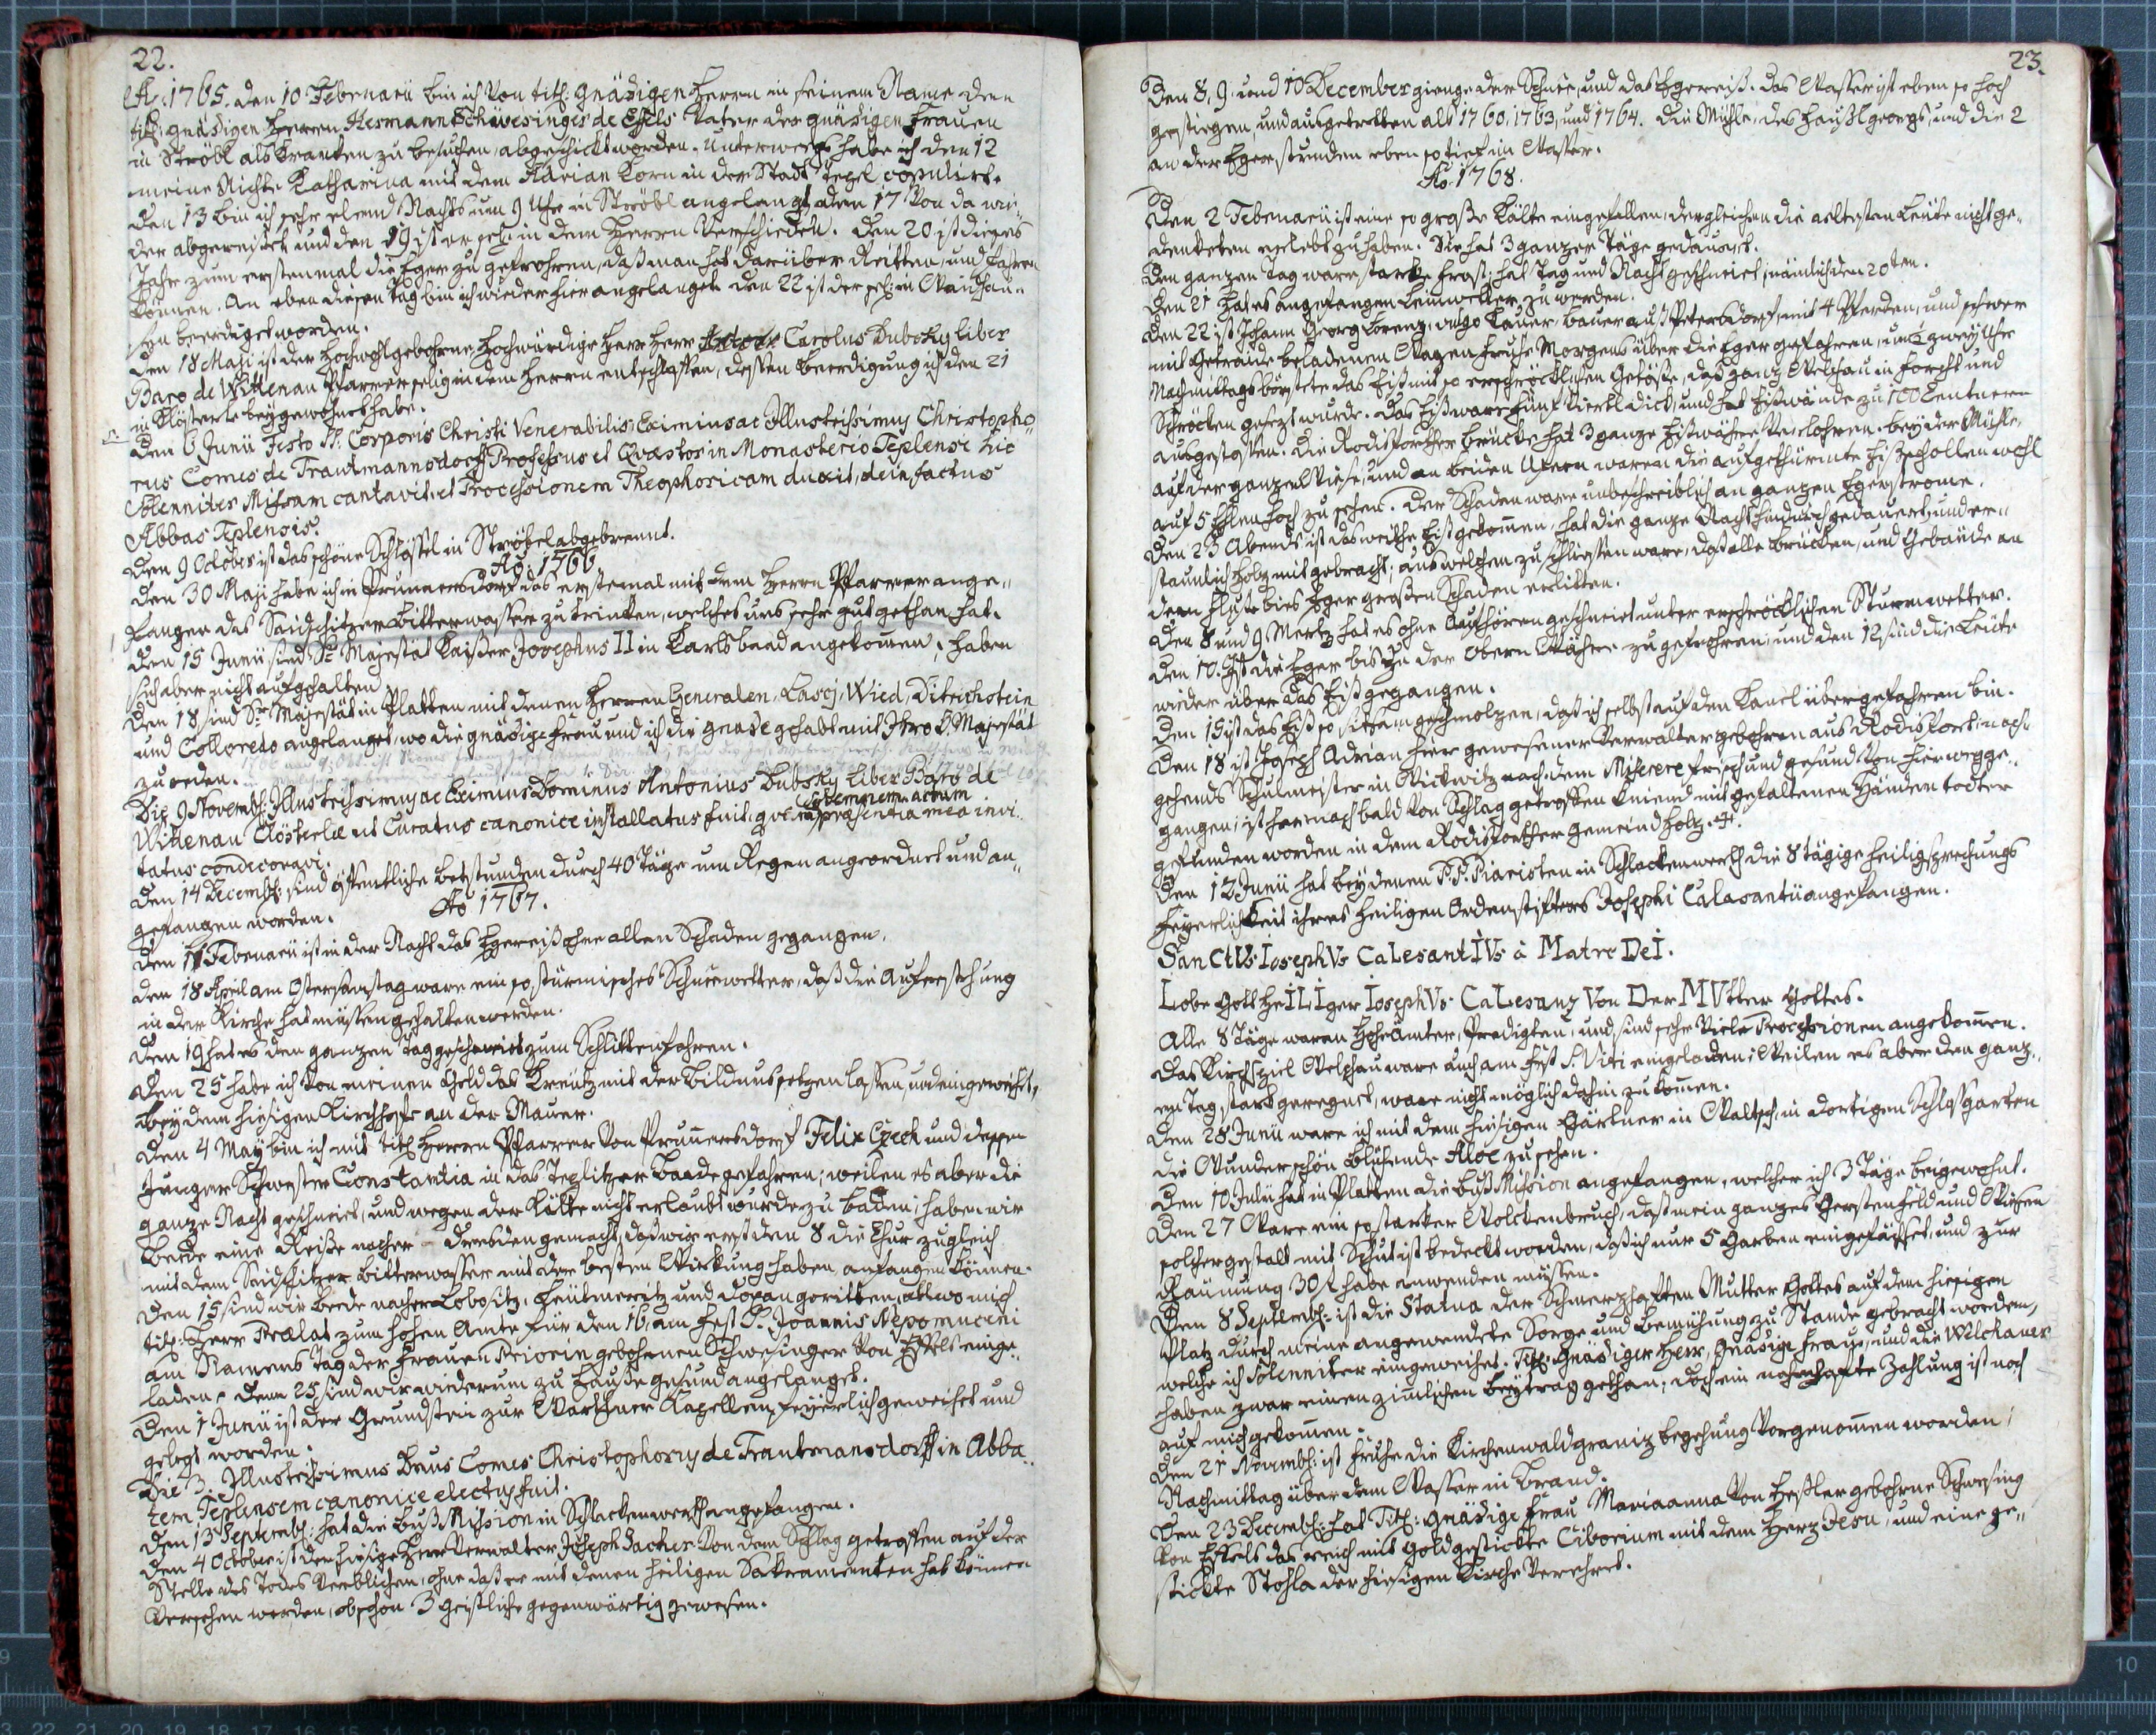 22.
Aõ: 1765. den 10 Februarii bin ich von titl: gnädigen Herrn in seinem Name den
titl: gnädigen Herrn Hermann Schwesinger de Essels Vater der gnädigen Frauen
in Ströbl als Kranken zu besuchen, abgeschickt worden. Unterwegs habe ich den 12
meine Nichte Katharina mit dem Adrian Korn in der Stadt Tepel copulirt.
den 13 bin ich sehr elend Nachts um 9 Uhr in Ströbl angelangt, den 17 von da wie,,
der abgereißet und den 19 ist er seh: in dem Herren verschieden. Den 20 ist dieses
Jahr zum erstenmal die Eger zu gefrohren, daß man hat darüber Reitten, und fahren
können. An eben diesen Tag bin ich wieder hier angelanget. den 22 ist der seh: in
beerdiget worden.
Den 18 Maji ist der Hochwohlgebohrne, Hochwürdige Herr Herr Carolus Dubsky liber
Baro de Wittenau Pfarrer selig in dem Herrn entschlaffen, dessen beerdigung ich den 21
in Klösterle beygewohnet habe.
Den 6 Junii Festo SS. Corporis Christi Venerabilis Eximius ac Illustrissimus Christopho,,
rus Comes de Trautmannsdorff Professus et Quæstor in Monasterio Teplensi hic
Solenniter Missam cantavit, et Processionem Theophoricam duxit, dein factus
Abbas Teplensis.
Den 9 October ist das schöne Schlössel in Ströbel abgebrennt.
Aõ. 1766
Den 30 Maji habe ich in Prunnersdorf das erstemal mit dem Herrn Pfarrer ange,,
fangen das Saidschitzer Bitterwasser zu trinken, welches uns sehr gut gethan hat.
Den 15 Junii sind Se Majestät Kaißer Josephus II in Karlsbaad angekom̅en, haben
sich aber nicht aufgehalten
Den 18 sind Se Majestät in Platten mit denen Herren Generalen, Lascj, Wied, Ditrichstein
und Colloredo angelanget, wo die gnädige Frau und ich die gnade gehabt mit Ihro Majestät
zu reden.
Die 9 Novemb: Illustrissimus ac Eximius Dominus Antonius Dubsky Liber Baro de
Wittenau Clösterlæ ut Curatus canonice installatus fuit, quem Solemnem actum præsentia mea invi,,
tatus condecoravi.
Den 14 Decemb: sind öffentliche betstunden durch 40 Täge um Regen angeordnet und an,,
gefangen worden.
Aõ 1767.
Den 11 Februarii ist in der Nacht das Egereiß ohne allen Schaden gegangen.
Den 18 April am Ostersamstag ware ein so stürmisches Schneewetter, daß die Auferstehung
in der Kirche hat müssen gehalten werden.
Den 19 hat es den ganzen Tag geschneiet zum Schlittenfahren.
Den 25 habe ich von meinen Geld das Kreütz mit der Bildnus setzen lassen, und eingeweihet,
bey dem hiesigen Kirchhofe an der Mauer.
Den 4 May bin ich mit titl: Herrn Pfarrer von Prun̅ersdorf Felix Czech und dessen
Junger Schwester Constantia in das Teplitzer Baade gefahren; weilen es aber die
ganze Nacht geschneiet, und wegen der Kälte nicht erlaubt wurde zu baden; haben wir
beide eine Reiße nacher Dresden gemacht, daß wir erst den 8 die Chur zugleich
mit dem Saidschitzer Bitterwasser mit der besten Wirkung haben anfangen können.
Den 15 sind wir beede nacher Lobositz, Leütmeritz und Doxan geritten, allwo mich
titl: Herr Prælat zum hohen Amte für den 16, am Fest S. Joannis Nepomuceni
am Namens Tag der Frauen Priorin gebohrnen Schwesinger von Essels einge,,
laden. Den 25 sind wir wiederum zu Hauße gesund angelanget.
Den 1 Junii ist der Grundstein zur Warthner Kapellen feyerlich geweihet und
gelegt worden.
Die 3. Illustrissimus Dnus Comes Christophorus de Trautmansdorff in Abba,,
tem Teplensem canonice electus fuit.
Den 13 Septemb: hat die buß Mission in Schlackenwerth angefangen.
Den 4 October ist der hiesige Herr Verwalter Joseph Sacher von dem Schlag getroffen auf der
Stelle des Todes verblichen, ohne daß er mit denen heiligen Sakramenten hat können
versehen werden, obschon 3 geistliche gegenwärtig gewesen.
23.
Den 8, 9. und 10 December gienge der Schnee, und das Egereiß. das Wasser ist eben so hoch
gestiegen, und ausgetretten als 1760, 1763, und 1764. die Mühle, des Haußlgeorgs, und die 2
an der Eger stunden eben so tief im Wasser.
Aõ. 1768.
Den 2 Februarii ist eine so große Kälte eingefallen, dergleichen die aeltesten Leüte nicht ge,,
denketen erlebt zu haben. Sie hat 3 ganzer Täge gedauert.
Den ganzen Tag ware starke Frost; hat Tag und Nacht geschneiet, nämlich den 20ten.
Den 21 hat es angefangen Leinwetter zu werden.
Den 22 ist Johann Georg Lorenz, vulgo Bauer auß Petersdorf, mit 4 Pferden, und schwer
mit Getraide beladenen Wagen fruhe Morgens über die Eger gefahren, um zwey Uhr
Nachmittags börstete das Eiß mit so erschröcklichen Getöße, daß ganz Welchau in Forcht und
Schröcken gesezt wurde. Das Eiß ware fünf Viertl dick, und hat Eißwände zu 100 Centnern
ausgestossen. Die Rodisforther brücke hat 3 ganze Eißwähre verlohren. bey der Mühle,
auf der ganzen Wiese, und an beiden Ufern waren die aufgethürmte Eißschollen wohl
auf 5 Ehlen hoch zu sehen. Der Schaden ware unbeschreiblich an ganzen Egerstrome.
Den 23 Abends ist das weithe Eiß gekom̅en, hat die ganze Nacht hindurch gedauert, und er,,
staunlich Holz mit gebracht; aus welchem zu schliessen ware, daß alle brücken, und Gebäude an
dem Fluße bies Eger großen Schaden erlitten.
Den 8 und 9 Mertz hat es ohne Aufhören geschneiet unter erschröcklichen Sturmwetter.
Den 10. Ist die Eger bis zu der obern Währe zu gefrohren, und den 12 sind die Leüte
wieder über das Eiß gegangen.
Den 15 ist das Eiß so sitsam geschmolzen, daß ich selbst auf den Kanel übergefahren bin.
Den 18 ist Joseph Adrian hier gewesener Verwalter gebohren aus Rodisfort nach,,
gehends Schulmeister in Wickwitz nach dem Miserere frisch und gesund von hier wegge,,
gangen; ist hernach bald von Schlag getroffen kniend mit gefaltenen Händen todter
gefunden worden in dem Rodisforther Gemeind Holz.
Den 12 Junii hat bey denen P.P. Piaristen in Schlackenwerth die 8 tägige heiligsprechungs
Feyerlichkeit ihres heiligen Ordenstifters Josephi Calasantii angefangen.
SanCtVs IosephVs CaLesantIVs à Matre DeI.
Lobe Gott HeILIger IosephVs CaLesanz Von Der MVtter Gottes.
Alle 8 Täge waren Hoheämter, Predigten, und sind sehr viele Processionen angekom̅en.
Das Kirchspiel Welchau ware auch am Fest S. Viti eingeladen; Weilen es aber den ganz,,
en Tag stark geregnet, ware nicht möglich dahin zu kom̅en.
Den 28 Junii ware ich mit dem hiesigen Gärtner in Waltsch, in dortigen Schloßgarten
die Wunderschön blühende Aloe zu sehen.
Den 10 Julii hat in Platten die buß Mission angefangen, welcher ich 3 Täge beigewohnt.
Den 27 Ware ein so starker Wolckenbruch, daß mein ganzes Gerstenfeld und Wiesen
solchergestalt mit Schut ist bedeckt worden, daß ich nur 5 Garben eingefächset, und zur
Räumung 30 f habe anwenden müssen.
Den 8 Septemb: ist die Statua der Schmerzhaften Mutter Gottes auf dem hiesigen
Platz durch meine angewendete Sorge und bemühung zu Stande gebracht worden,
welche ich Solenniter eingeweihet. Titl: Gnädiger Herr, Gnädige Frau, und die Welchauer
haben zwar einen zim̅lichen beytrag gethan; doch ein nahmhafte Zahlung ist noch
auf mich gekom̅en.
Den 21 Novemb: ist Fruhe die Kirchenwaldgraniz begehung vorgenom̅en worden,
Nachmittag über dem Wasser in Brand.
Den 23 Decemb: hat Titl: gnädige Frau Mariaanna von Heßler gebohrne Schwesing
von Essels das reich mit Gold gestickte Ciborium mit dem Herz Jesu, und eine ge,,
stickte Stohla der hiesigen Kirche verehret.